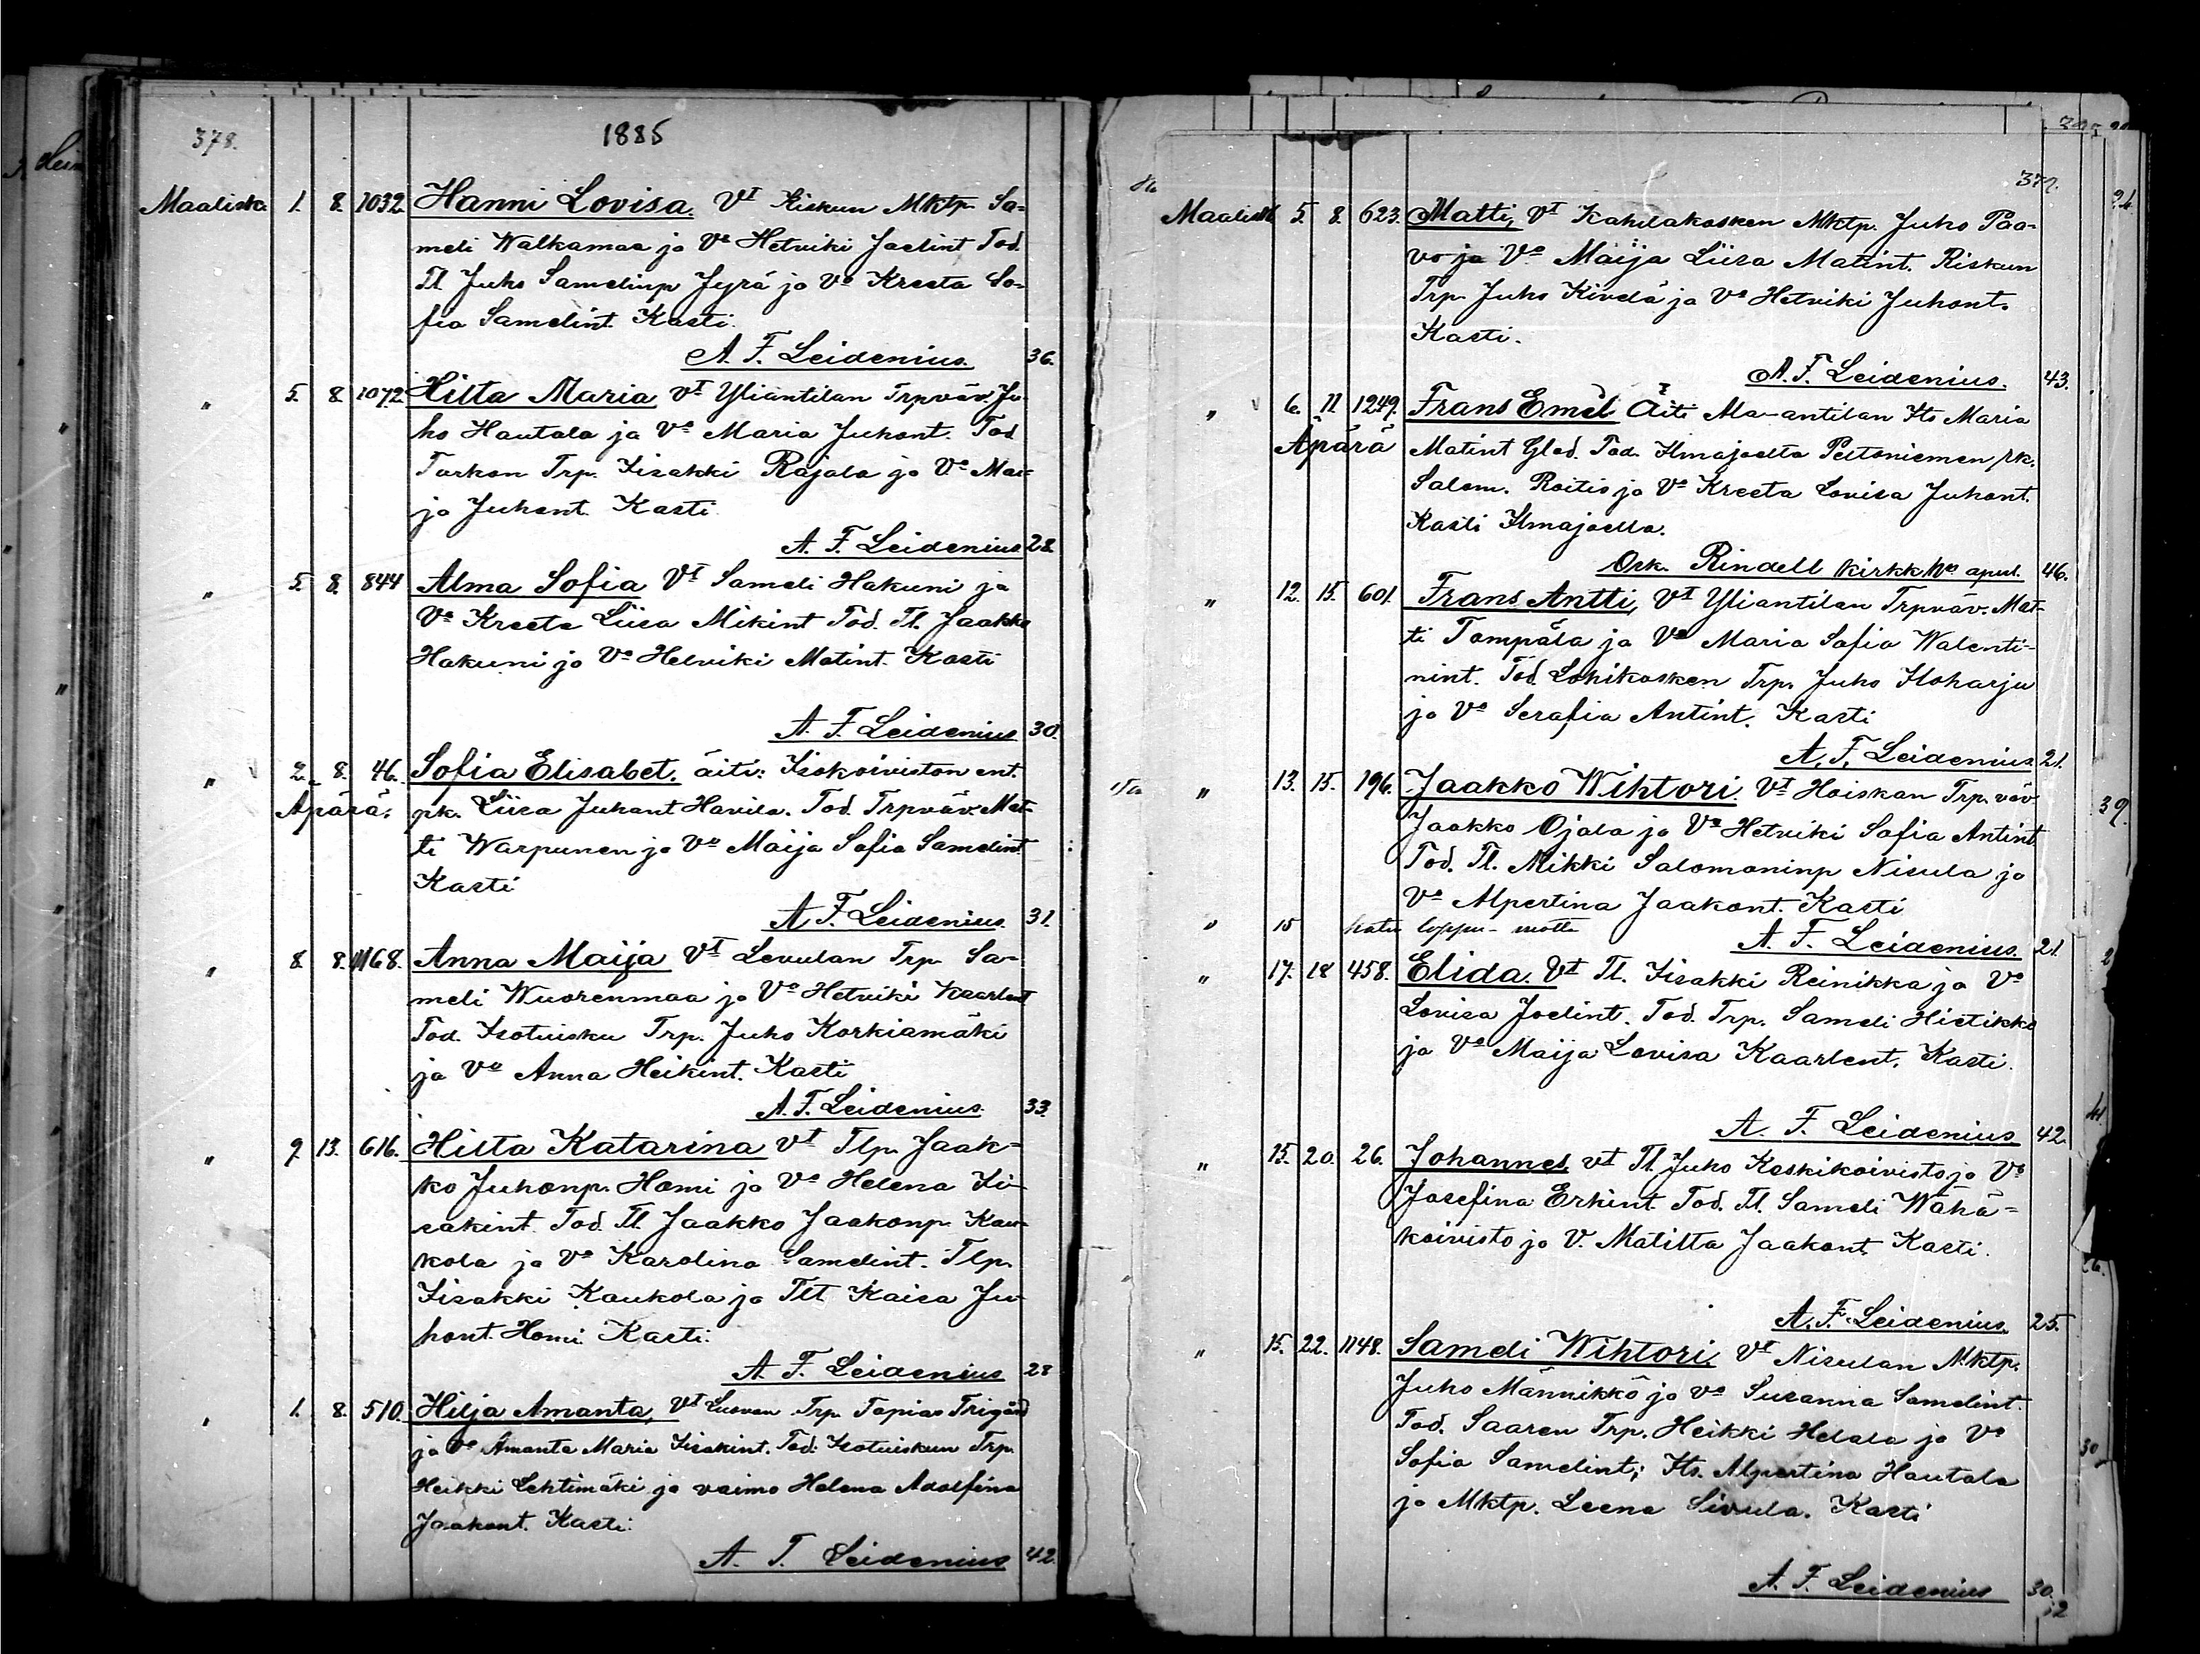 378.
1885
Maalisk. 1. 8. 1032 Hanni Lovisa. Vt Riskun Mktp. Sa-
meli Walkamaa ja Vo Hetviki Joelint Tod.
Tl Juho Samelinp Jyrä ja Vo Kreeta So-
fia Samelint. Kasti.
A. F. Leidenius. 36.
" 5. 8. 1072. Hilta Maria Vt Yliantilan Trpväv. Ju-
ho Hautala ja Vo Maria Juhont. Tod
Turkan Trp. Iisakki Rajala ja Vo Mai-
ja Juhont. Kasti
A. F. Leidenius 28.
" 5. 8. 844 Alma Sofia Vt Sameli Hakuni ja
Vo Kreeta Liisa Mikint Tod. Tl. Jaakko
Hakuni ja Vo Helviki Matint. Kasti
A. F. Leidenius 30.
" 2. 8. 46. Sofia Elisabet. äiti: Isokoiviston ent.
Äpärä. pk. Liisa Juhant Havila. Tod. Trpväv. Mat-
ti Warpunen ja Vo Maija Sofia Samelint
Kasti
A. F. Leidenius. 31.
" 8. 8. 1168. Anna Maija Vt Levulan Trp. Sa-
meli Wuorenmaa ja Vo Hetviki Kaarlent
Tod. Isotuisku Trp. Juho Korkiamäki
ja Vo Anna Heikint. Kasti
A. F. Leidenius. 33.
" 9. 13. 616. Hilta Katarina Vt Tlp. Jaak-
ko Juhonp. Homi ja Vo Helena Ii-
sakint. Tod. Tl. Jaakko Jaakonp. Kau-
kola ja Vo Karolina Samelint. Tlp.
Iisakki Kaukola ja Tlt Kaisa Ju-
hont. Homi Kasti.
A. F. Leidenius 28
" 1. 8. 510. Hilja Amanta, Vt Luovan Trp. Topias Trigård
ja Vo Amanta Maria Iisakint. Tod. Isotuiskun Trp.
Heikki Lehtimäki ja vaimo Helena Adolfina
Jaakont. Kasti.
A. F. Leidenius 42.
379.
Maalisk 5. 8. 623. Matti, Vt Kahilakosken Mktp. Juho Paa-
vo ja Vo Maija Liisa Matint. Riskun
Trp. Juho Kivelä ja Vo Hetviki Juhont.
Kasti.
A. F. Leidenius. 43.
" 6. 11 1249. Frans Emel Äiti Ala-antilan Its Maria
Äpärä Matint Glad. Tod. Ilmajoelta Peltoniemen pk.
Salom. Roitis ja Vo Kreeta Lovisa Juhont.
Kasti Ilmajoella.
Osk. Rindell kirkkhra apul. 46.
" 12. 15. 601. Frans Antti, Vt Yliantilan Trpväv. Mat-
ti Tompäla ja Vo Maria Sofia Walenti-
nint. Tod. Lohikosken Trp. Juho Isoharju
ja Vo Serafia Antint. Kasti
A. F. Leidenius 21.
" 13. 15. 196. Jaakko Wihtori. Vt Hoiskan Trp. väv
Jaakko Ojala ja Vo Hetviki Sofia Antint
Tod. Tl. Mikki Salomoninp Nisula ja
Vo Alpertina Jaakont. Kasti
" 15 katso loppu-
A. F. Leidenius. 21.
" 17. 18 458. Elida. Vt Tl. Iisakki Reinikka ja Vo
Lovisa Joelint. Tod. Trp. Sameli Hietikko
ja Vo Maija Lovisa Kaarlent. Kasti.
A. F. Leidenius 42.
" 15. 20. 26. Johannes, Vt Tl. Juho Keskikoivisto ja Vo
Josefina Erkint. Tod. Tl. Sameli Wähä-
koivisto ja V. Matilta Jaakont Kasti.
A. F. Leidenius. 25.
" 15. 22. 1148. Sameli Wihtori. Vt Nisulan Mktp.
Juho Männikkö ja Vo Susanna Samelint.
Tod. Saaren Trp. Heikki Helala ja Vo
Sofia Samelint; Its. Alpertina Hautala
ja Mktp. Leena Sivula. Kasti
A. F. Leidenius 30.